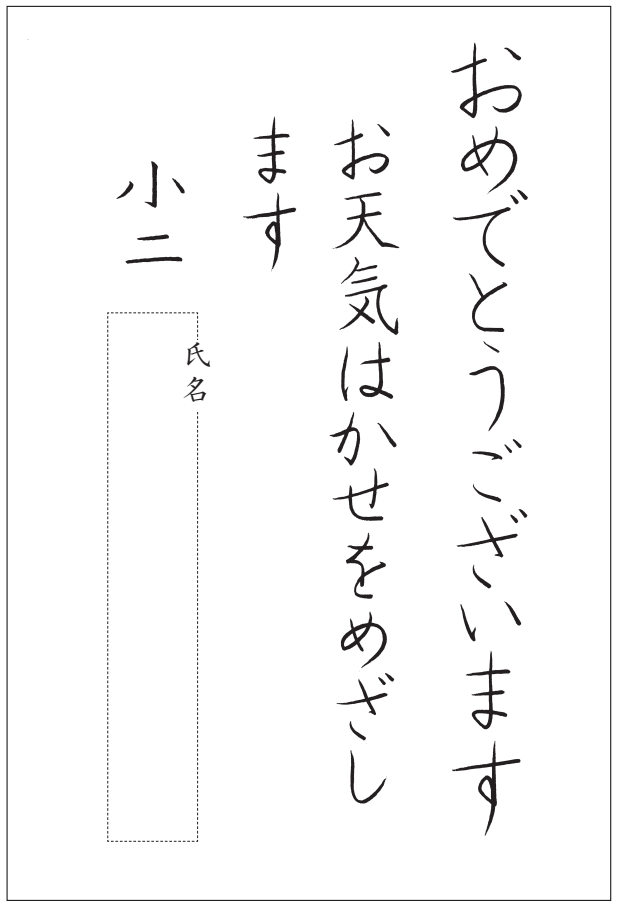 おめでとうございます
お天気はかせをめざし
ます
小二
氏名